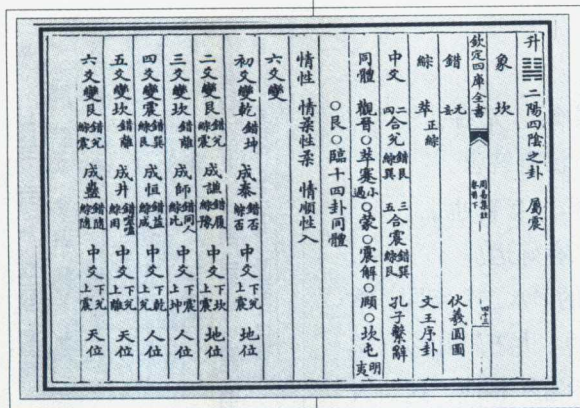 升 ䷭ 二陽四陰之卦 屬震
象 坎
欽定四庫全書 周易集註 卷首下
錯 无妄 伏羲圓圖
綜 萃 正綜 文王序卦
中爻 二四合兌 錯艮綜巽 三五合震 錯巽綜艮 孔子繫辭
同體 觀晉○萃蹇小過○蒙○震解○頤○坎屯明夷
○艮○臨十四卦同體
情性 情柔性柔 情順性入
六爻變
初爻變乾 錯坤 成泰 錯否綜否 中爻 下兌上震 地位
二爻變艮 錯兌綜震 成謙 錯履綜豫 中爻 下坎上震 地位
三爻變坎 錯離 成師 錯同人綜比 中爻 下震上坤 人位
四爻變震 錯巽綜艮 成恒 錯益綜咸 中爻 下乾上兌 人位
五爻變坎 錯離 成井 錯噬嗑綜困 中爻 下兌上離 天位
六爻變艮 錯兌綜震 成蠱 錯隨綜隨 中爻 下兌上震 天位